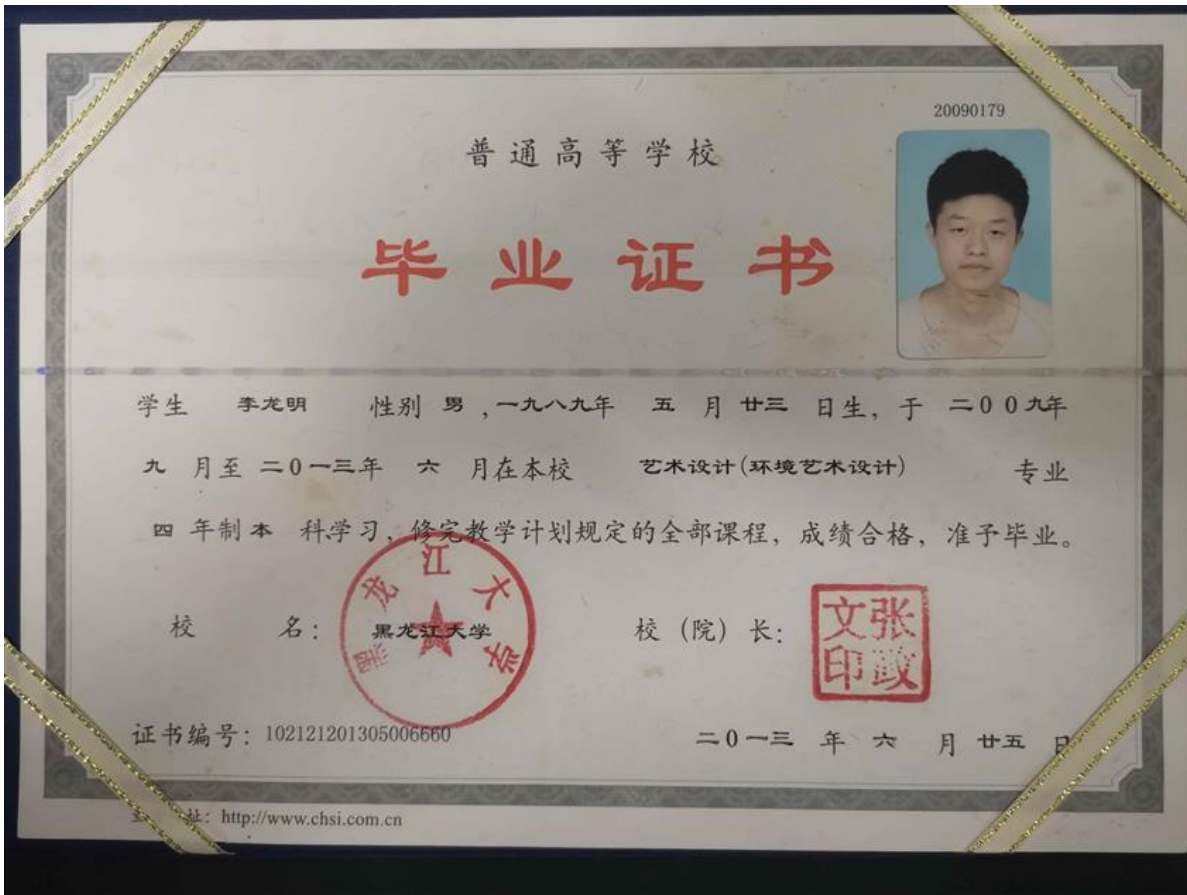 20090179
普通高等学校
毕业证书
学生 李龙明 性别 男 ,一九八九年 五 月 廿三 日生, 于 二00九年
九 月至 二0一三年 六 月在本校 艺术设计(环境艺术设计) 专业
四 年制 本 科学习, 修完教学计划规定的全部课程, 成绩合格, 准予毕业。
校 名: 黑龙江大学 校 (院) 长:
黑龙江大学
张政文印
证书编号: 102121201305006660 二0一三 年 六 月 廿五 日
址: http://www.chsi.com.cn